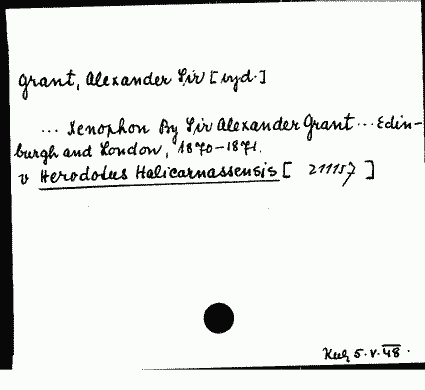 Grant, Alexander Sir [wyd.]
... Xenophon By Sir Alexander Grant ... Edin-
burgh and London, 1870-1871.
v Herodotus Halicarnassensis [ 211157 ]
5.V.48.